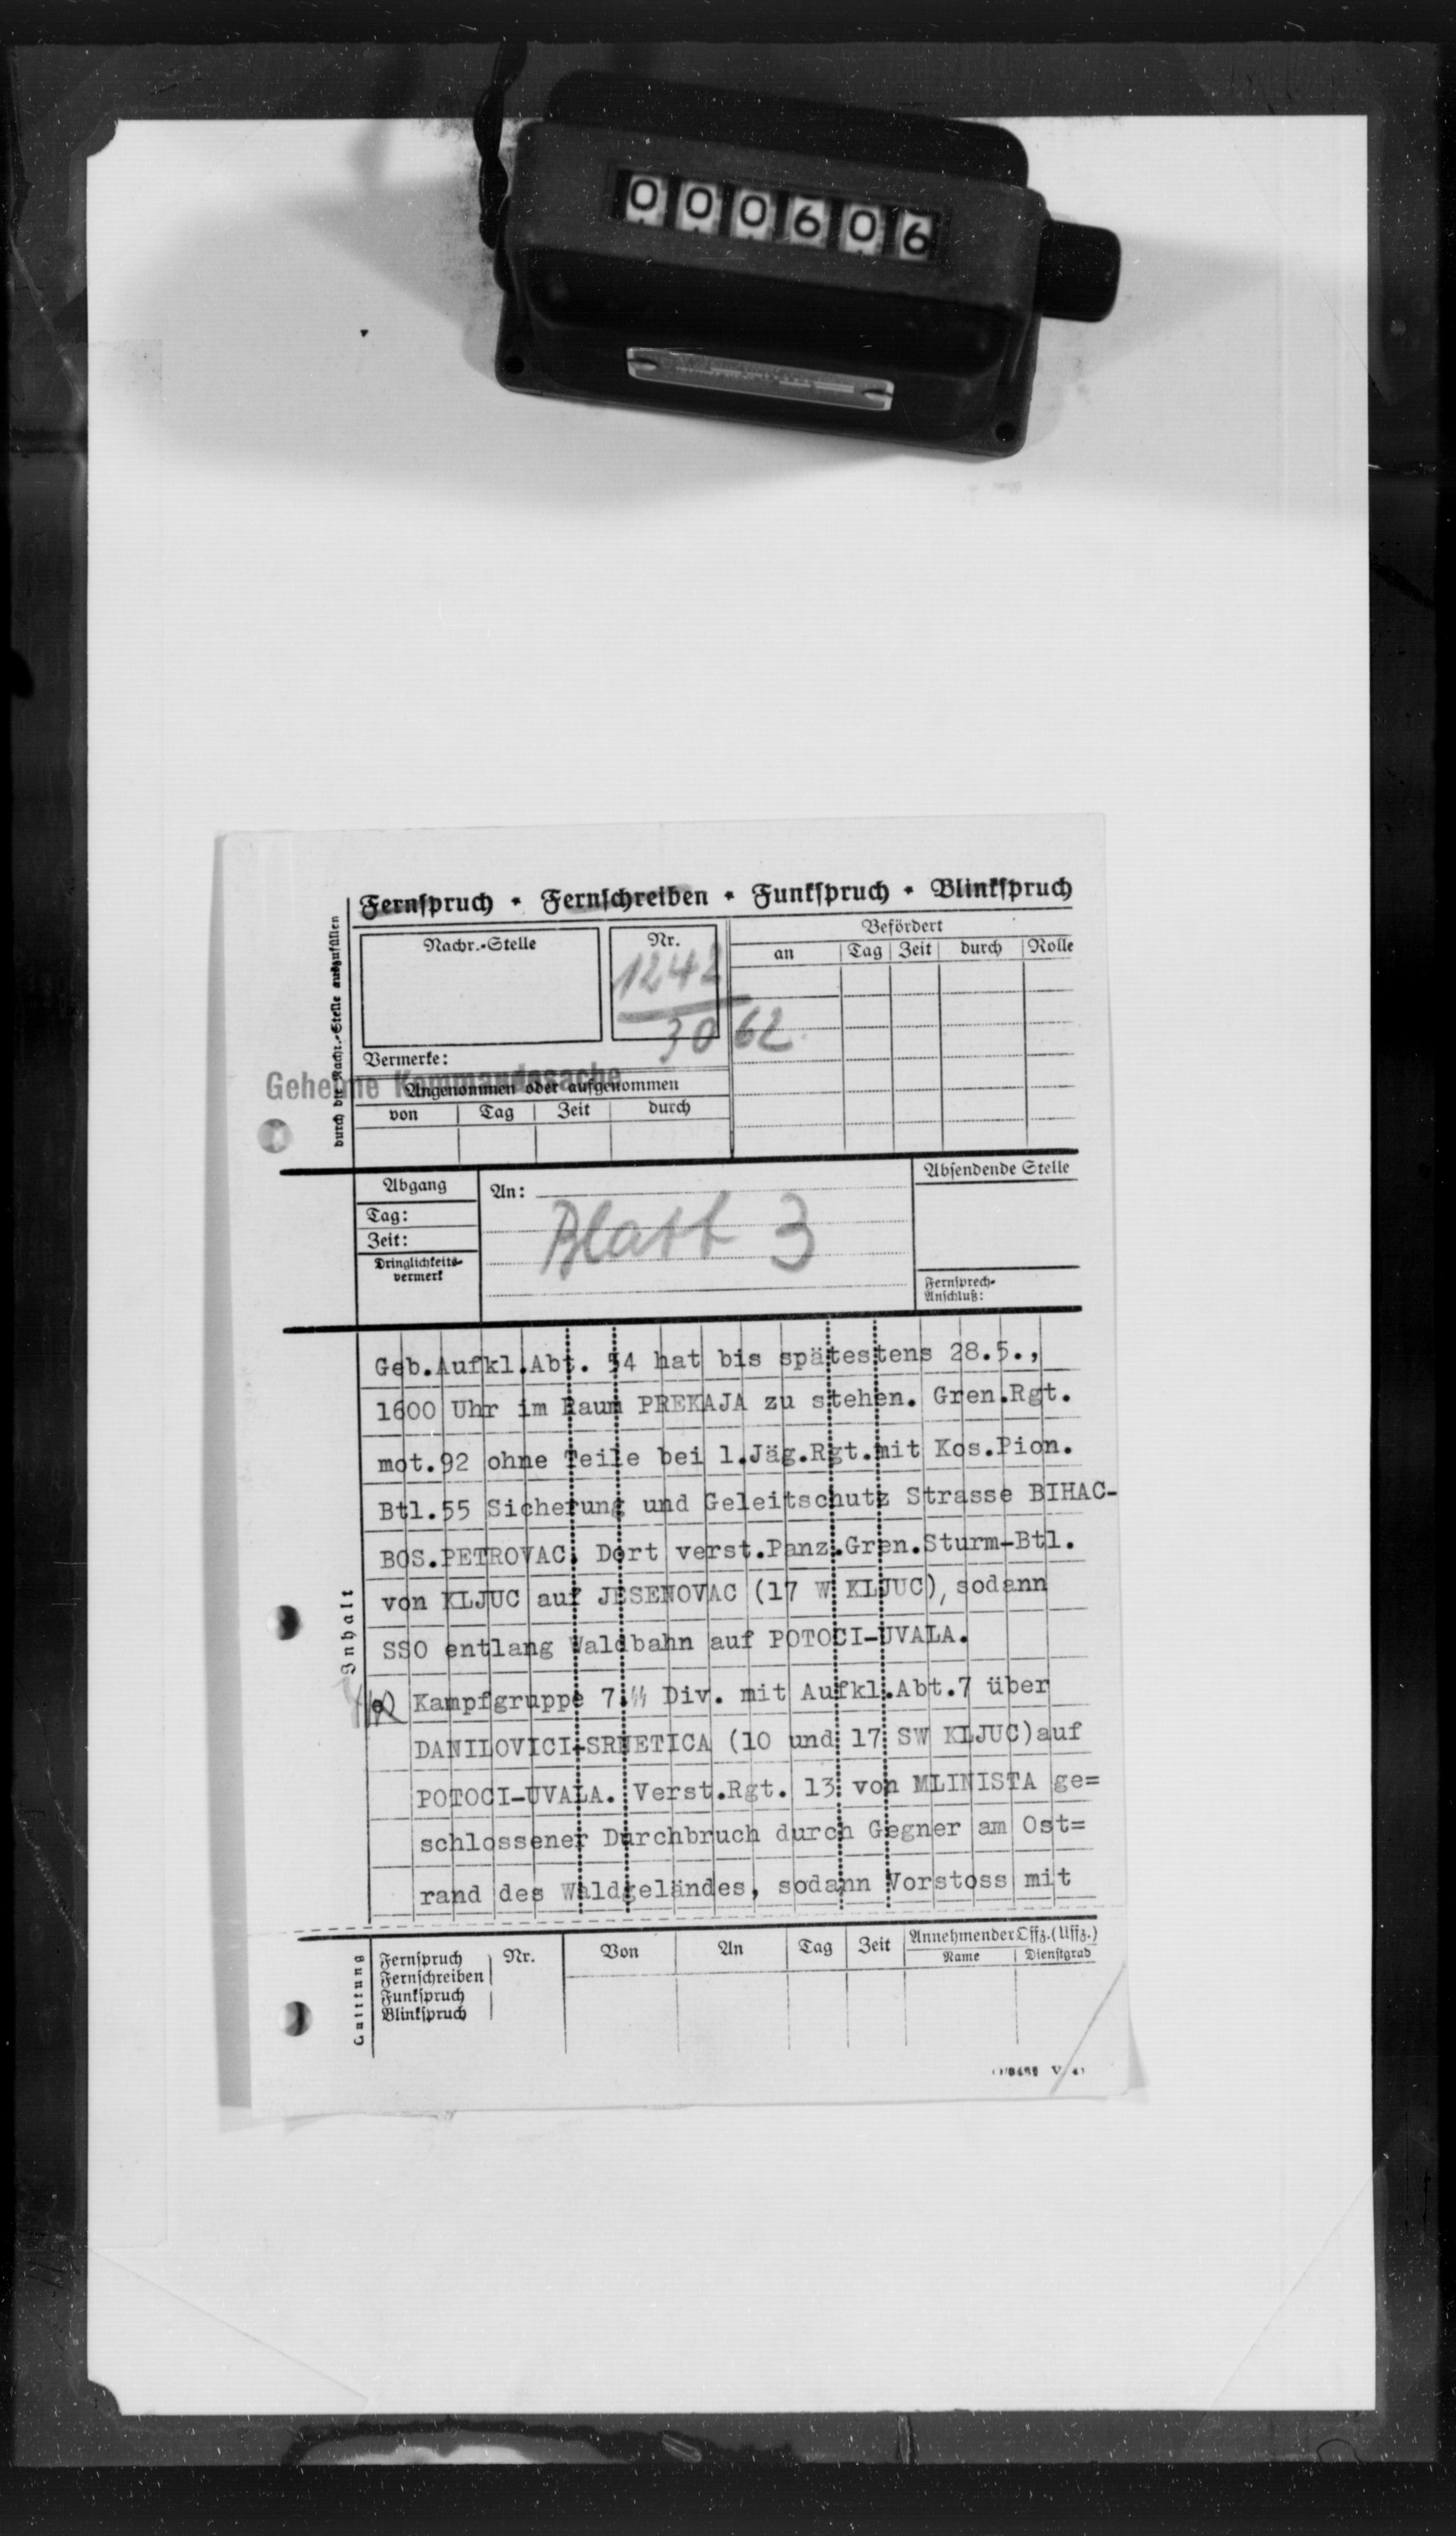 000606
Fernspruch • Fernschreiben • Funkspruch • Blinkspruch
durch die Nachr.-Stelle auszufüllen
Nachr.-Stelle
Nr.
1242
30 62
Befördert
an Tag Zeit durch Rolle
Vermerke:
Geheime Kommandosache
Angenommen oder aufgenommen
von Tag Zeit durch
Abgang
Tag:
Zeit:
Dringlichkeits-
vermerk
An:
Blatt 3
Absendende Stelle
Fernsprech-
Anschluß:
Inhalt
Geb.Aufkl.Abt. 54 hat bis spätestens 28.5.,
1600 Uhr im Raum PREKAJA zu stehen. Gren.Rgt.
mot.92 ohne Teile bei 1.Jäg.Rgt.mit Kos.Pion.
Btl.55 Sicherung und Geleitschutz Strasse BIHAC-
BOS.PETROVAC. Dort verst.Panz.Gren.Sturm-Btl.
von KLJUC auf JESENOVAC (17 W KLJUC), sodann
SSO entlang Waldbahn auf POTOCI-UVALA.
Kampfgruppe 7.ᛋᛋ Div. mit Aufkl.Abt.7 über
DANILOVICI-SRNETICA (10 und 17 SW KLJUC)auf
POTOCI-UVALA. Verst.Rgt. 13 von MLINISTA ge=
schlossener Durchbruch durch Gegner am Ost=
rand des Waldgeländes, sodann Vorstoss mit
Quittung
Fernspruch
Fernschreiben
Funkspruch
Blinkspruch
Nr. Von An Tag Zeit
Annehmender Offz.(Uffz.)
Name Dienstgrad